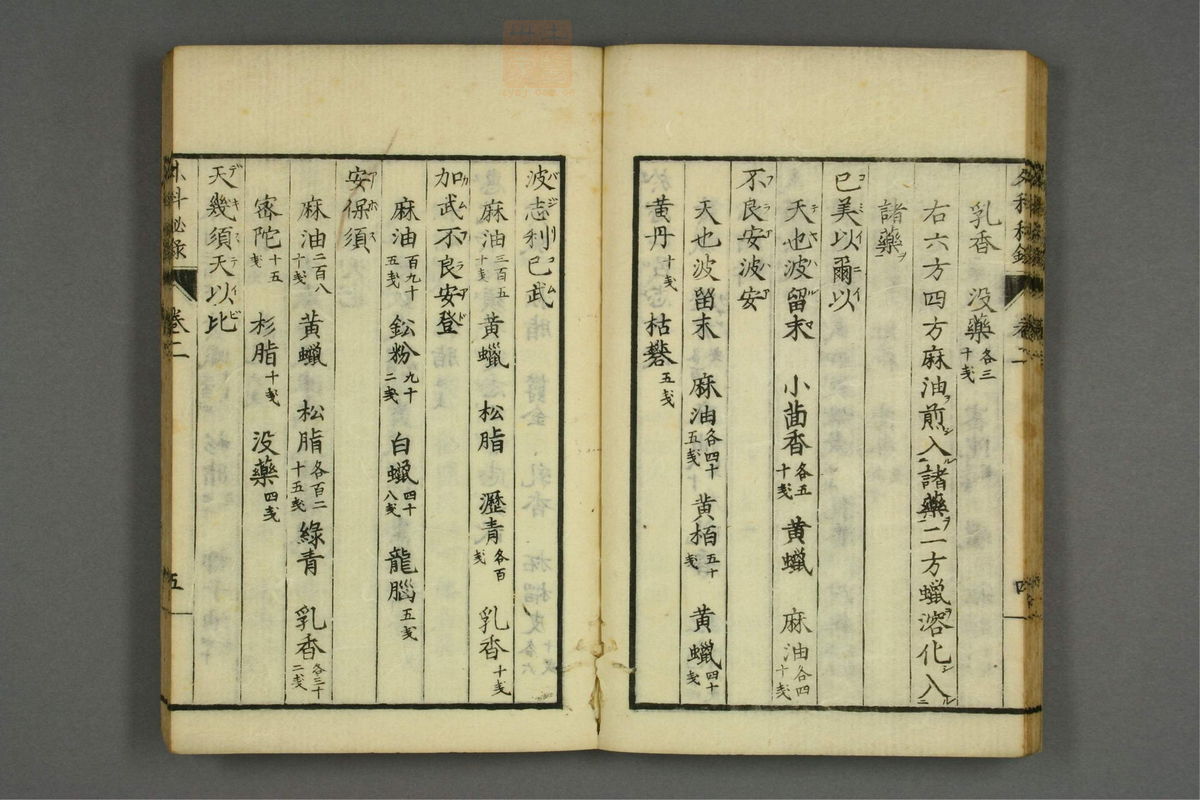 外科秘録 卷二 四
乳香 没藥各三十戔
右六方四方麻油煎入諸藥二方蠟溶化入
諸藥
巳美以爾以
天也波留末 小茴香各五十戔 黄蠟 麻油各四十戔
不良安波安
天也波留末 麻油各四十五戔 黄栢五十戔 黄蠟四十戔
黄丹十戔 枯礬五戔
波志利巳武
麻油三百五十戔 黄蠟 松脂 瀝青各百戔 乳香十戔
加武不良安登
麻油百九十五戔 鈆粉九十二戔 白蠟四十八戔 龍腦五戔
安保須
麻油二百八十戔 黄蠟 松脂各百二十五戔 綠青 乳香各三十二戔
密陀十五戔 杉脂十戔 没藥四戔
天幾須天以比
外科秘録 卷二 五